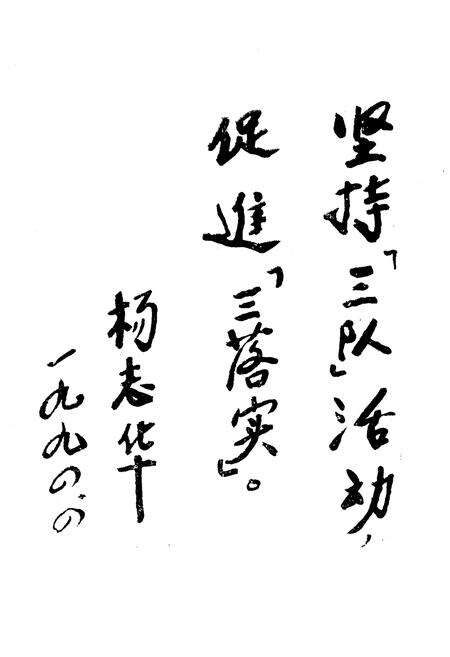 坚持「三队」活动,
促進「三落实」。
杨志华
一九九〇.〇